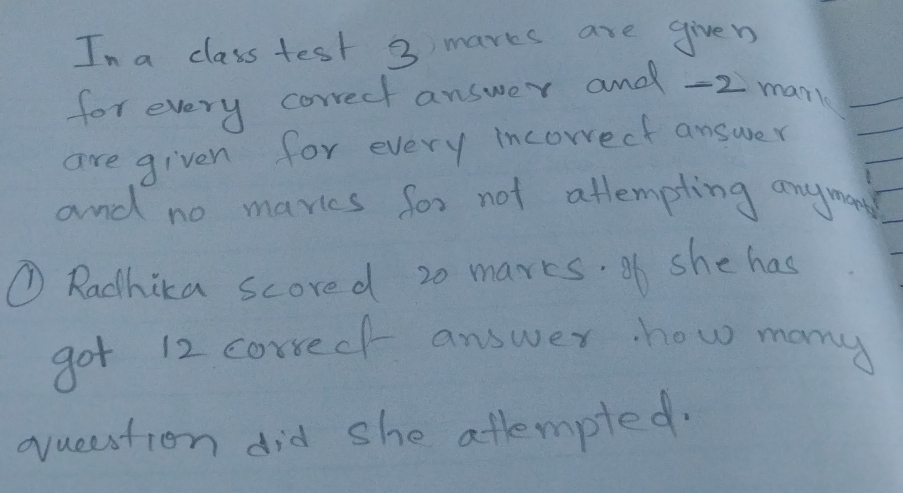 In a class test 3 marks are given
for every correct answer and -2 mark
are given for every incorrect answer
and no marks for not attempting any
① Radhika scored 20 marks. If she has
got 12 correct answer. how many
queestion did she attempted.